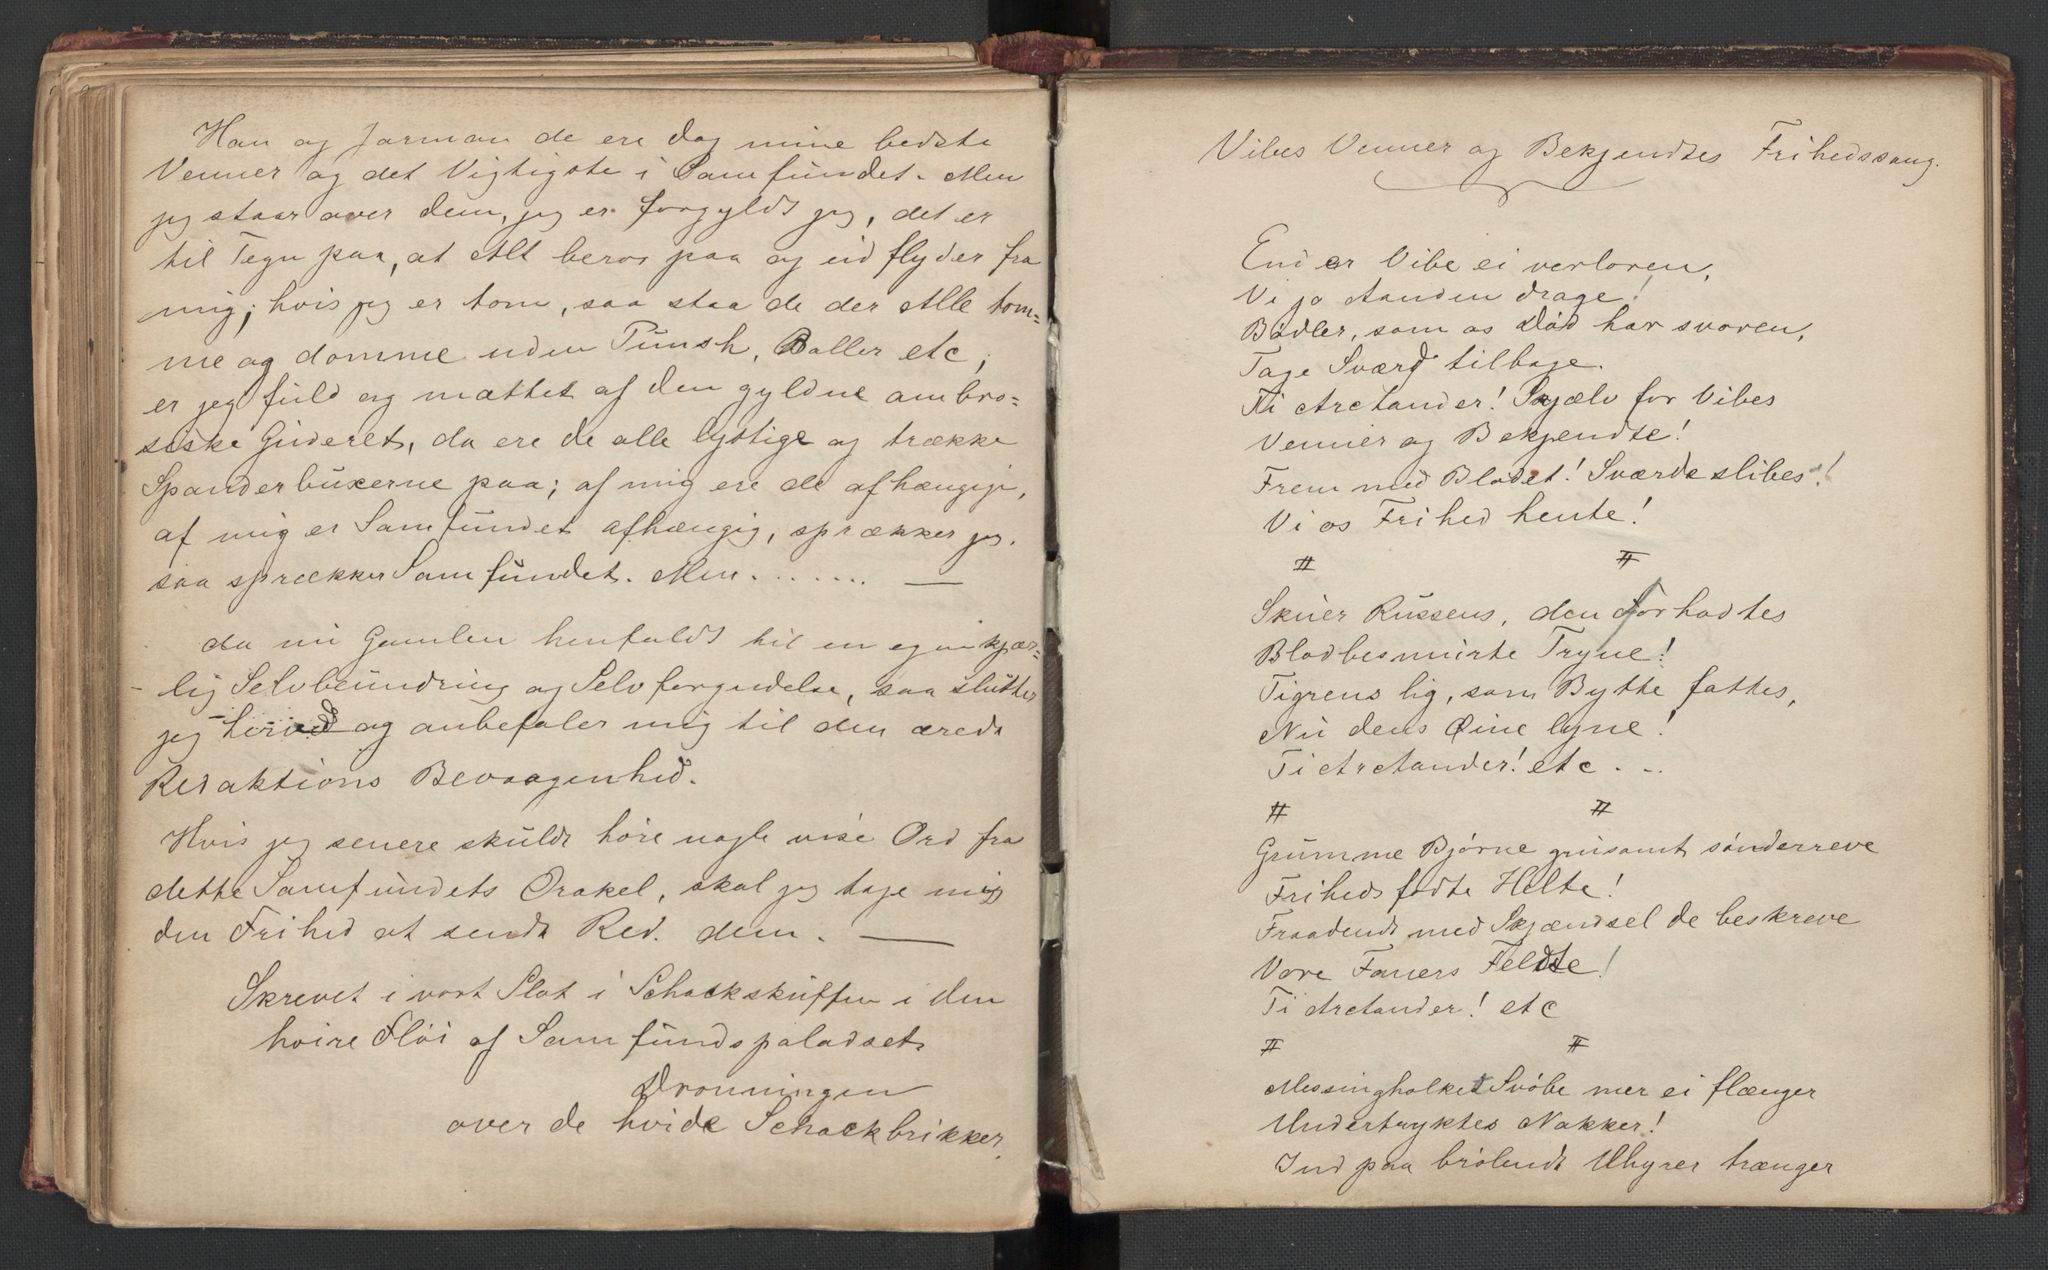 Han og Jarman de ere dog mine bedste
Venner og det Vigtigste i Samfundet. Men
jeg staar over dem, jeg er forgyldt jeg, det er
til Tegn paa, at Alt beror paa og udflyder fra
mig; hvis jeg er tom, saa staa de der Alle tom=
me og domme uden Punsh, Boller etc,
er jeg fuld og mættet af den gyldne ambro=
siske Guderet, da ere de alle lystige og trække
Spanderbuxerne paa; af mig ere de afhængige,
af mig er Samfundet afhængig, sprækker jeg,
saa sprækker Samfundet. Men. . . . . . . —
da nu Gamlen henfaldt til en egenkjær=
lig Selvbeundring og Selvforgudelse, saa slutter
jeg herved og anbefaler mig til den ærede
Redaktions Bevaagenhed.
Hvis jeg senere skulde høre nogle vise Ord fra
dette Samfundets Orakel, skal jeg tage mig
den Frihed at sende Red. dem. —
Skrevet i vort Slot i Schackskuffen i den
høire Fløi af Samfundspaladset.
Dronningen
over de hvide Schackbrikker.
Vibes Venner og Bekjendtes Frihedssang.
End er Vibe ei verloren,
Vi jo Aanden drage!
Bødler, som os Død har svoren,
Tage Sværd tilbage.
Ti Arctander! Skjælv for Vibes
Venner og Bekjendte!
Frem med Blodet! Sværde slibes!
Vi os Frihed hente!
# #
Skuer Russens, den forhadtes
Blodbesmurte Tryne!
Tigrens lig, som Bytte fattes,
Nu dens Øine lyne!
Ti Arctander! etc . . .
# #
Grumme Bjørne grusomt sønderreve
Frihedsfødte Helte!
Fraadende med Skjændsel de beskreve
Vore Faners Feldte!
Ti Arctander! etc
# #
Messingholket Svøbe mer ei flænger
Undertryktes Nakker!
Ind paa brølende Uhyrer trænger